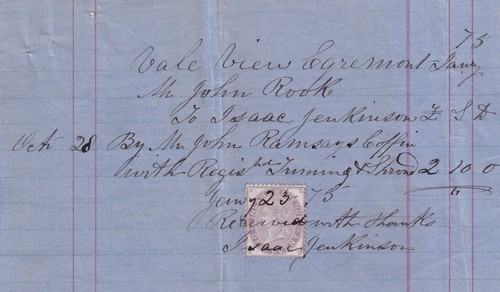 75
Vale View Egremont Jany
Mr John Rook
To Isaac Jenkinson £ S D
Oct 28 By Mr John Ramsays Coffin
with Regis Triming & Shroud 2 10 0
Jany 23 75
Received with thanks
Isaac Jenkinson